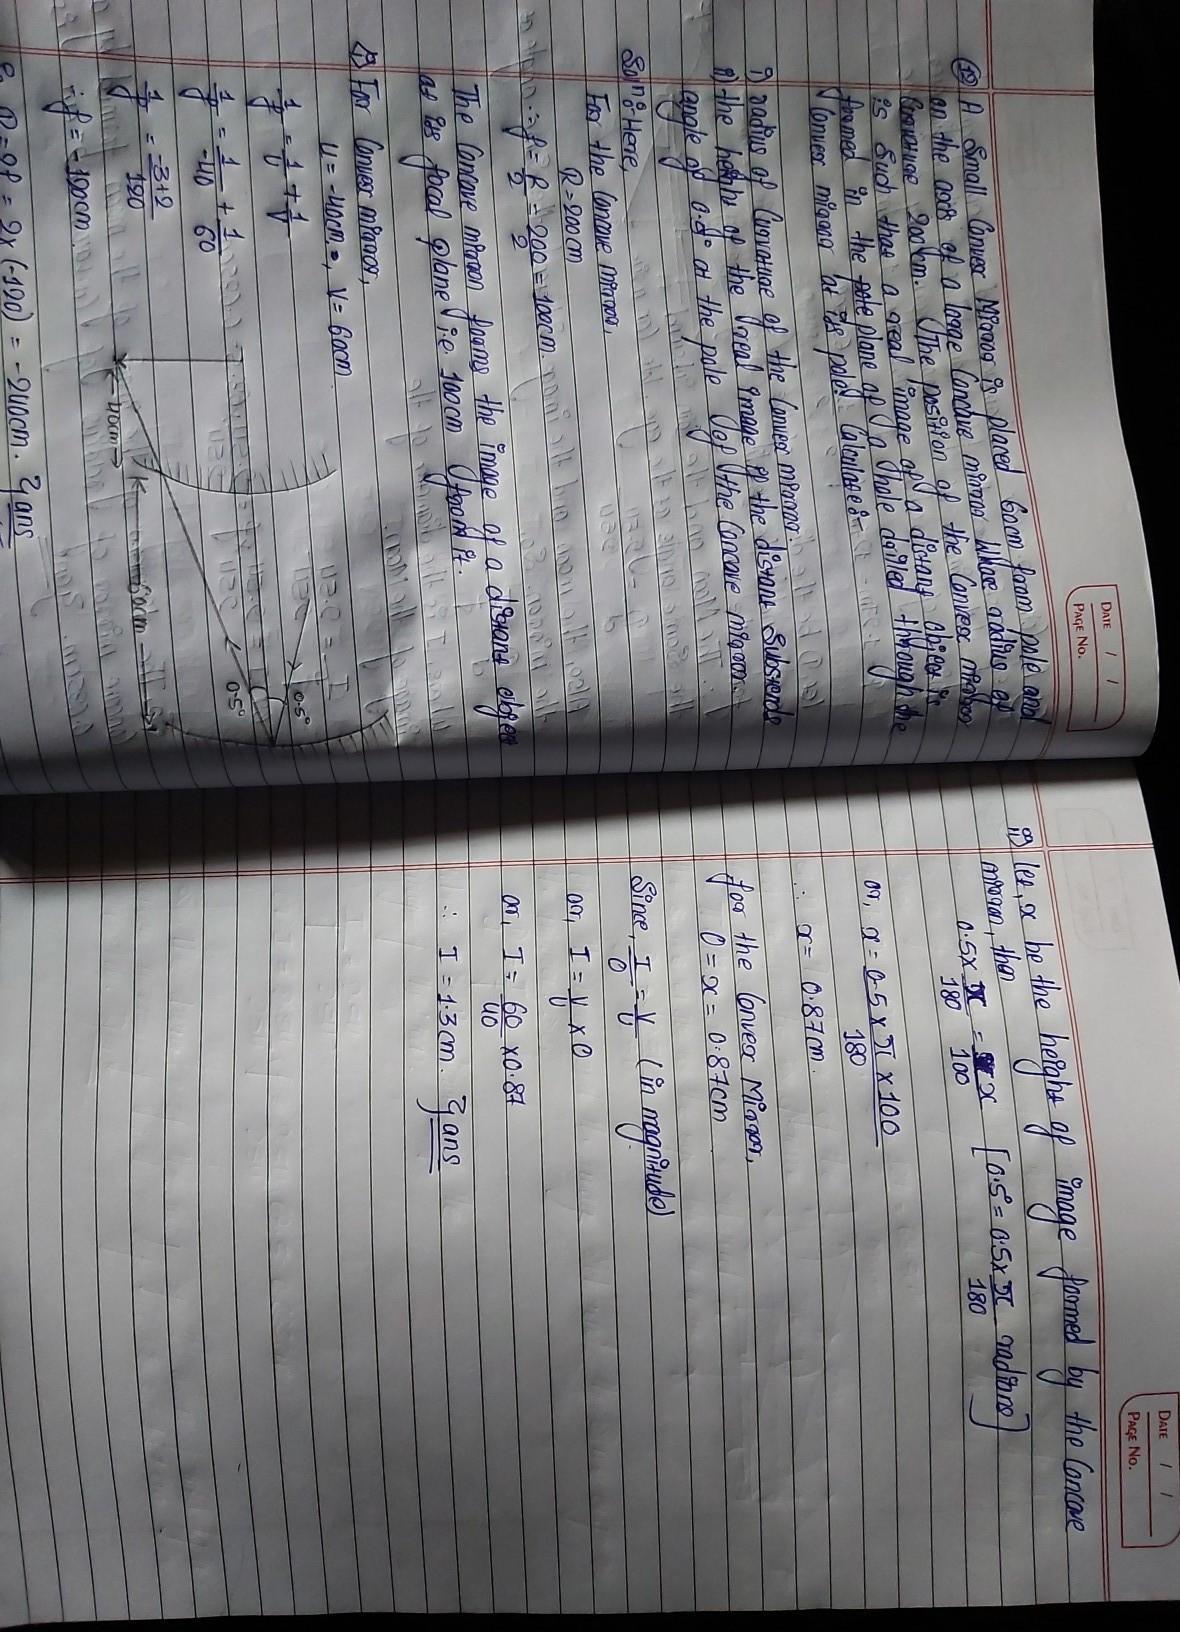 DATE / /
PAGE NO.
A Small Convex Mirror is placed 60cm from pole and
on the axis of a large Concave mirror whose radius of
Curvature 200cm. The position of the Convex mirror
is Such that a real image of a distant object is
formed in the plane of a hole drilled through the
Convex mirror at its pole. Calculate:-
i) radius of Curvature of the Convex mirror.
ii) the height of the real image if the distant Substends
angle of 0.5° at the pole of the Concave mirror.
Soln:- Here,
For the Concave mirror,
R = 200cm
∴ f = R/2 = 200/2 = 100cm.
The Concave mirror forms the image of a distant object
at its focal plane i.e. 100cm from it.
i) For Convex mirror,
u = -40cm, v = 60cm
1/f = 1/u + 1/v
1/f = 1/-40 + 1/60
1/f = -3+2/120
∴ f = -120cm
R = 2f = 2×(-120) = -240cm. ans
0.5°
0.5°
40cm
60cm
DATE / /
PAGE NO.
ii) let, x be the height of image formed by the Concave
mirror, then
0.5×π/180 = x/100 [0.5° = 0.5×π/180 radians]
or, x = 0.5×π×100/180
∴ x = 0.87cm.
for the Convex Mirror,
O = x = 0.87cm
Since, I/O = v/u (in magnitude)
or, I = v/u × O
or, I = 60/40 × 0.87
∴ I = 1.3cm. ans